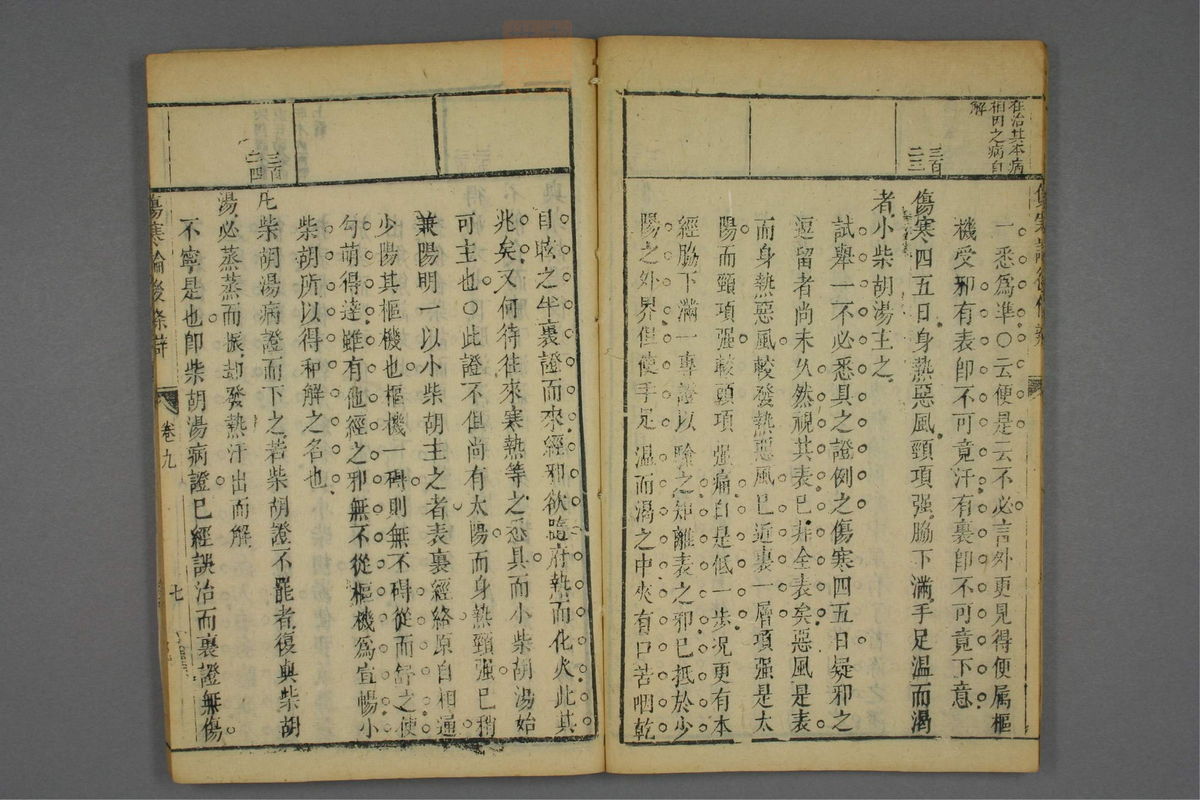 在治其本病
相因之病自
解
三百
二三
一悉爲準〇云便是云不必言外更見得便屬樞
機受邪有表卽不可竟汗有裏卽不可竟下意
傷寒四五日身熱惡風頸項强脇下滿手足溫而渴
者小柴胡湯主之
試舉一不必悉具之證例之傷寒四五日疑邪之
逗留者尚未久然視其表已非全表矣惡風是表
而身熱惡風較發熱惡風已近裏一層項强是太
陽而頸項强較頭項强痛自是低一步況更有本
經脇下滿一專證以驗之知離表之邪已抵於少
陽之外界但使手足溫而渴之中夾有口苦咽乾
目眩之半裏證而來經邪欲臨府熱而化火此其
兆矣又何待往來寒熱等之悉具而小柴胡湯始
可主也〇此證不但尚有太陽而身熱頸强已稍
兼陽明一以小柴胡主之者表裏經絡原自相通
少陽其樞機也樞機一碍則無不碍從而舒之使
勾萌得達雖有他經之邪無不從樞機爲宣暢小
柴胡所以得和解之名也
三百
二四
凡柴胡湯病證而下之若柴胡證不罷者復與柴胡
湯必蒸蒸而振却發熱汗出而解
不寧是也卽柴胡湯病證已經誤治而裏證無傷
傷寒論後條辯
卷九
七